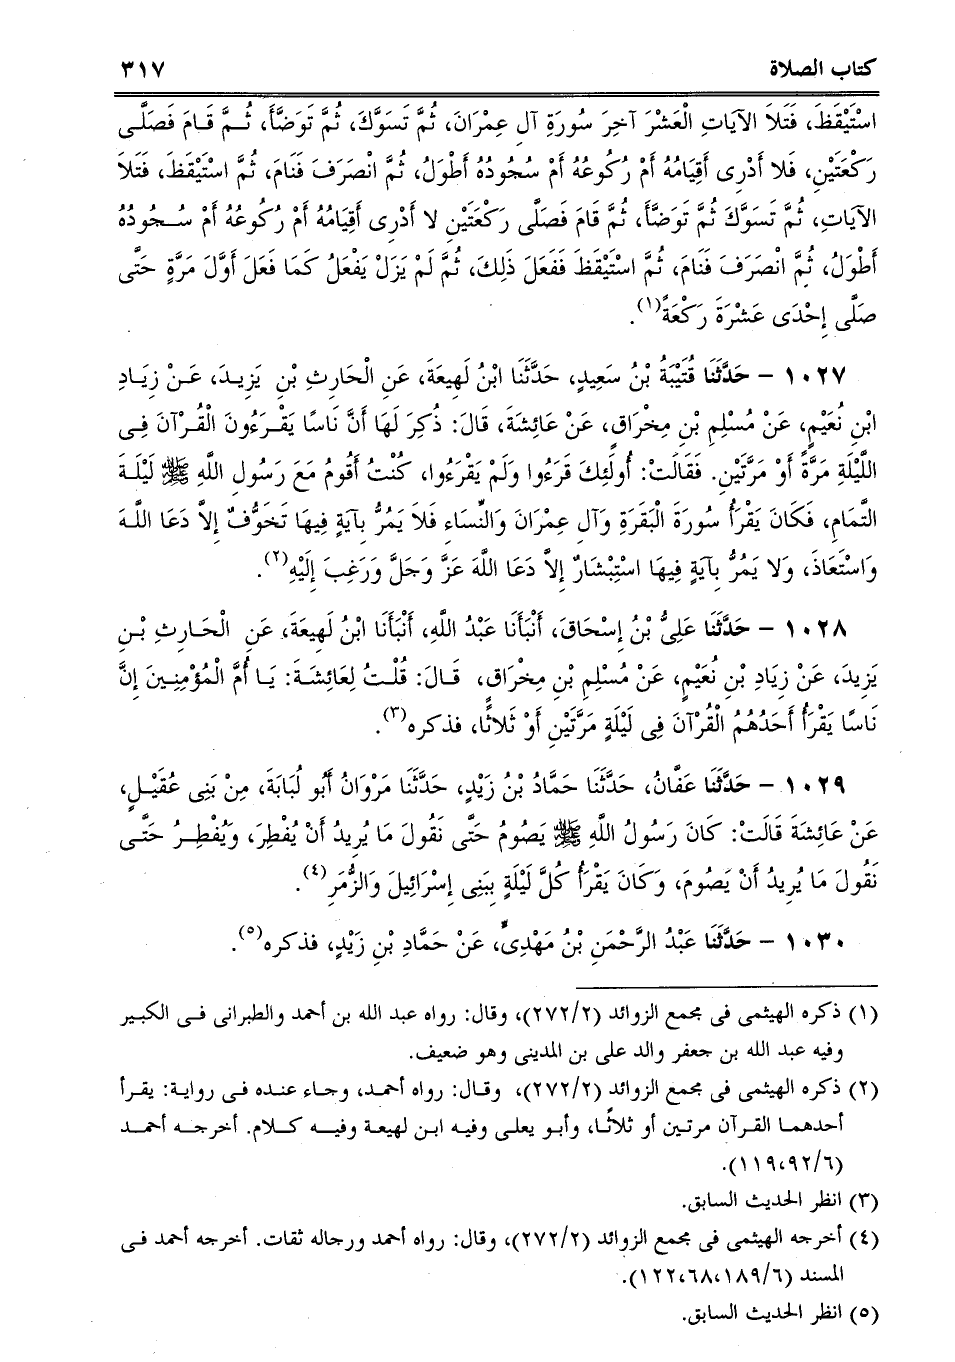 كتاب الصلاة ٣١٧
اسْتَيْقَظَ، فَتَلاَ الآيَاتِ الْعَشْرَ آخِرَ سُورَةِ آلِ عِمْرَانَ، ثُمَّ تَسَوَّكَ، ثُمَّ تَوَضَّأَ، ثُمَّ قَامَ فَصَلَّى
رَكْعَتَيْنِ، فَلا أَدْرِى أَقِيَامُهُ أَمْ رُكُوعُهُ أَمْ سُجُودُهُ أَطْوَلُ، ثُمَّ انْصَرَفَ فَنَامَ، ثُمَّ اسْتَيْقَظَ، فَتَلاَ
الآيَاتِ، ثُمَّ تَسَوَّكَ ثُمَّ تَوَضَّأَ، ثُمَّ قَامَ فَصَلَّى رَكْعَتَيْنِ لا أَدْرِى أَقِيَامُهُ أَمْ رُكُوعُهُ أَمْ سُجُودُهُ
أَطْوَلُ، ثُمَّ انْصَرَفَ فَنَامَ، ثُمَّ اسْتَيْقَظَ فَفَعَلَ ذلِكَ، ثُمَّ لَمْ يَزَلْ يَفْعَلُ كَمَا فَعَلَ أَوَّلَ مَرَّةٍ حَتَّى
صَلَّى إِحْدَى عَشْرَةَ رَكْعَةً(١).
١٠٢٧ - حَدَّثَنَا قُتَيْبَةُ بْنُ سَعِيدٍ، حَدَّثَنَا ابْنُ لَهِيعَةَ، عَنِ الْحَارِثِ بْنِ يَزِيدَ، عَنْ زِيَادِ
ابْنِ نُعَيْمٍ، عَنْ مُسْلِمِ بْنِ مِخْرَاقٍ، عَنْ عَائِشَةَ، قَالَ: ذُكِرَ لَهَا أَنَّ نَاسًا يَقْرَءُونَ الْقُرْآنَ فِى
اللَّيْلَةِ مَرَّةً أَوْ مَرَّتَيْنِ. فَقَالَتْ: أُولَئِكَ قَرَءُوا وَلَمْ يَقْرَءُوا، كُنْتُ أَقُومُ مَعَ رَسُولِ اللَّهِ ﷺ لَيْلَةَ
التَّمَامِ، فَكَانَ يَقْرَأُ سُورَةَ الْبَقَرَةِ وَآلِ عِمْرَانَ وَالنِّسَاءِ فَلاَ يَمُرُّ بِآيَةٍ فِيهَا تَخَوُّفٌ إِلاَّ دَعَا اللَّهَ
وَاسْتَعَاذَ، وَلا يَمُرُّ بِآيَةٍ فِيهَا اسْتِبْشَارٌ إِلاَّ دَعَا اللَّهَ عَزَّ وَجَلَّ وَرَغِبَ إِلَيْهِ(٢).
١٠٢٨ - حَدَّثَنَا عَلِىُّ بْنُ إِسْحَاقَ، أَنْبَأَنَا عَبْدُ اللَّهِ، أَنْبَأَنَا ابْنُ لَهِيعَةَ، عَنِ الْحَارِثِ بْنِ
يَزِيدَ، عَنْ زِيَادِ بْنِ نُعَيْمٍ، عَنْ مُسْلِمِ بْنِ مِخْرَاقٍ، قَالَ: قُلْتُ لِعَائِشَةَ: يَا أُمَّ الْمُؤْمِنِينَ إِنَّ
نَاسًا يَقْرَأُ أَحَدُهُمُ الْقُرْآنَ فِى لَيْلَةٍ مَرَّتَيْنِ أَوْ ثَلاثًا، فذكره(٣).
١٠٢٩ - حَدَّثَنَا عَفَّانُ، حَدَّثَنَا حَمَّادُ بْنُ زَيْدٍ، حَدَّثَنَا مَرْوَانُ أَبُو لُبَابَةَ، مِنْ بَنِى عُقَيْلٍ،
عَنْ عَائِشَةَ قَالَتْ: كَانَ رَسُولُ اللَّهِ ﷺ يَصُومُ حَتَّى نَقُولَ مَا يُرِيدُ أَنْ يُفْطِرَ، وَيُفْطِرُ حَتَّى
نَقُولَ مَا يُرِيدُ أَنْ يَصُومَ، وَكَانَ يَقْرَأُ كُلَّ لَيْلَةٍ بِبَنِى إِسْرَائِيلَ وَالزُّمَرِ(٤).
١٠٣٠ - حَدَّثَنَا عَبْدُ الرَّحْمَنِ بْنُ مَهْدِىٍّ، عَنْ حَمَّادِ بْنِ زَيْدٍ، فذكره(٥).
(١) ذكره الهيثمى فى مجمع الزوائد (٢٧٢/٢)، وقال: رواه عبد الله بن أحمد والطبرانى فى الكبير
وفيه عبد الله بن جعفر والد على بن المدينى وهو ضعيف.
(٢) ذكره الهيثمى فى مجمع الزوائد (٢٧٢/٢)، وقال: رواه أحمد، وجاء عنده فى رواية: يقرأ
أحدهما القرآن مرتين أو ثلاثًا، وأبو يعلى وفيه ابن لهيعة وفيه كلام. أخرجه أحمد
(١١٩،٩٢/٦).
(٣) انظر الحديث السابق.
(٤) أخرجه الهيثمى فى مجمع الزوائد (٢٧٢/٢)، وقال: رواه أحمد ورجاله ثقات. أخرجه أحمد فى
المسند (١٢٢،٦٨،١٨٩/٦).
(٥) انظر الحديث السابق.